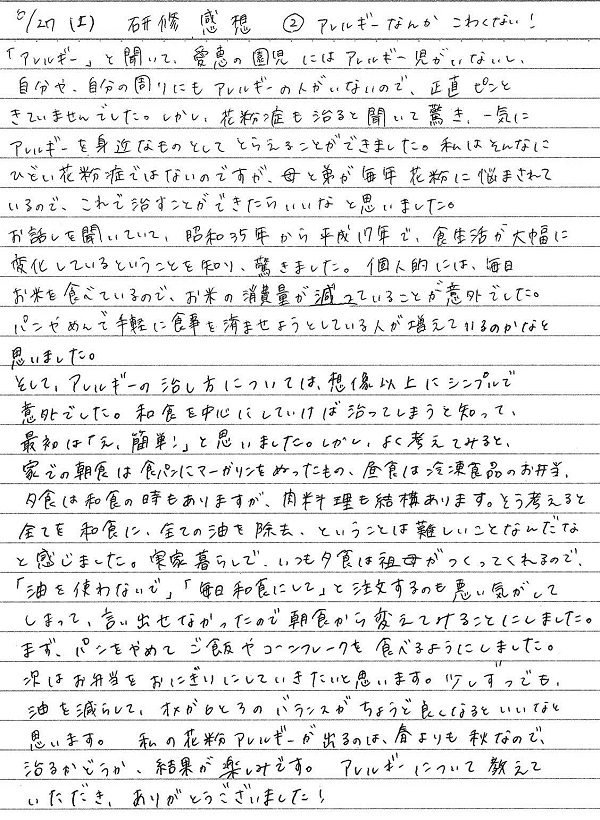 6/27(土) 研修 感想 ② アレルギーなんか こわくない!
「アレルギー」と聞いて、愛恵の園児にはアレルギー児がいないし、
自分や、自分の周りにもアレルギーの人がいないので、正直ピンと
きていませんでした。しかし、花粉症も治ると聞いて驚き、一気に
アレルギーを身近なものとしてとらえることができました。私はそんなに
ひどい花粉症ではないのですが、母と弟が毎年花粉に悩まされて
いるので、これで治すことができたらいいなと思いました。
お話しを聞いていて、昭和35年から平成17年で、食生活が大幅に
変化しているということを知り、驚きました。個人的には、毎日
お米を食べているので、お米の消費量が減っていることが意外でした。
パンやめんで手軽に食事を済ませようとしている人が増えているのかなと
思いました。
そして、アレルギーの治し方については、想像以上にシンプルで
意外でした。和食を中心にしていけば治ってしまうと知って、
最初は「え、簡単!」と思いました。しかし、よく考えてみると、
家での朝食は食パンにマーガリンをぬったもの、昼食は冷凍食品のお弁当、
夕食は和食の時もありますが、肉料理も結構あります。そう考えると
全てを和食に、全ての油を除去、ということは難しいことなんだな
と感じました。実家暮らしで、いつも夕食は祖母がつくってくれるので、
「油を使わないで」「毎日和食にして」と注文するのも悪い気がして
しまって、言い出せなかったので朝食から変えてみることにしました。
まず、パンをやめてご飯やコーンフレークを食べるようにしました。
次はお弁当をおにぎりにしていきたいと思います。少しずつでも、
油を減らして、オメガ6と3のバランスがちょうど良くなるといいなと
思います。 私の花粉アレルギーが出るのは、春よりも秋なので、
治るかどうか、結果が楽しみです。 アレルギーについて教えて
いただき、ありがとうございました!